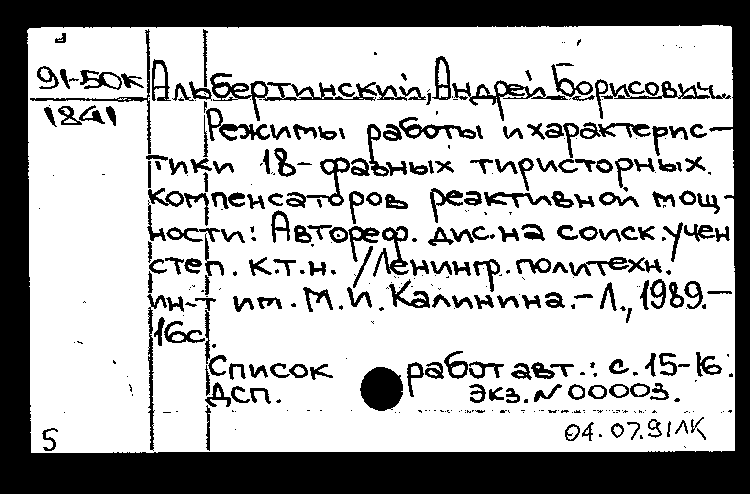 91-50к Альбертинский, Андрей Борисович.
1841
Режимы работы и характерис-
тики 18-фазных тиристорных
компенсаторов реактивной мощ-
ности: Автореф. дис. на соиск. учен
степ. к.т.н. //Ленингр. политехн.
ин-т им. М.И. Калинина.- Л., 1989.-
16с.
Список работ авт.: с. 15-16.
ДСП. экз. N 00003.
5 04.07.91 ЛК